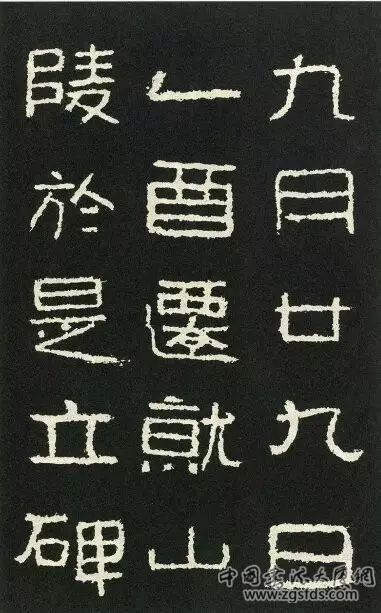 九月廿九日
乙酉遷就山
陵於是立碑
中国书法大展网
www.zgsfds.com